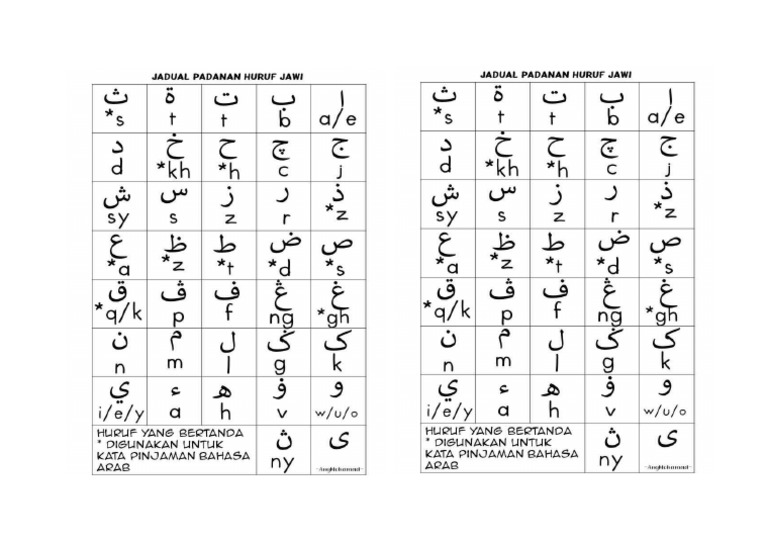 JADUAL PADANAN HURUF JAWI
ا ب ت ة ث
a/e b t t *s
ج چ ح خ د
j c *h *kh d
ذ ر ز س ش
*z r z s sy
ص ض ط ظ ع
*s *d *t *z *a
غ ڠ ف ڤ ق
*gh ng f p *q/k
ک ݢ ل م ن
k g l m n
و ۏ ه ء ي
w/u/o v h a i/e/y
ى ڽ
ny
HURUF YANG BERTANDA
* DIGUNAKAN UNTUK
KATA PINJAMAN BAHASA
ARAB
JADUAL PADANAN HURUF JAWI
ا ب ت ة ث
a/e b t t *s
ج چ ح خ د
j c *h *kh d
ذ ر ز س ش
*z r z s sy
ص ض ط ظ ع
*s *d *t *z *a
غ ڠ ف ڤ ق
*gh ng f p *q/k
ک ݢ ل م ن
k g l m n
و ۏ ه ء ي
w/u/o v h a i/e/y
ى ڽ
ny
HURUF YANG BERTANDA
* DIGUNAKAN UNTUK
KATA PINJAMAN BAHASA
ARAB